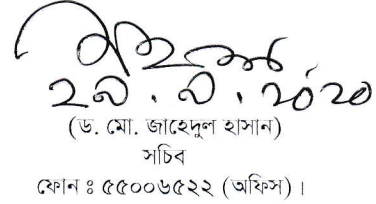 ২৯.৯.২০২০
(ড. মো. জাহেদুল হাসান)
সচিব
ফোন ঃ ৫৫০০৬৫২২ (অফিস)।